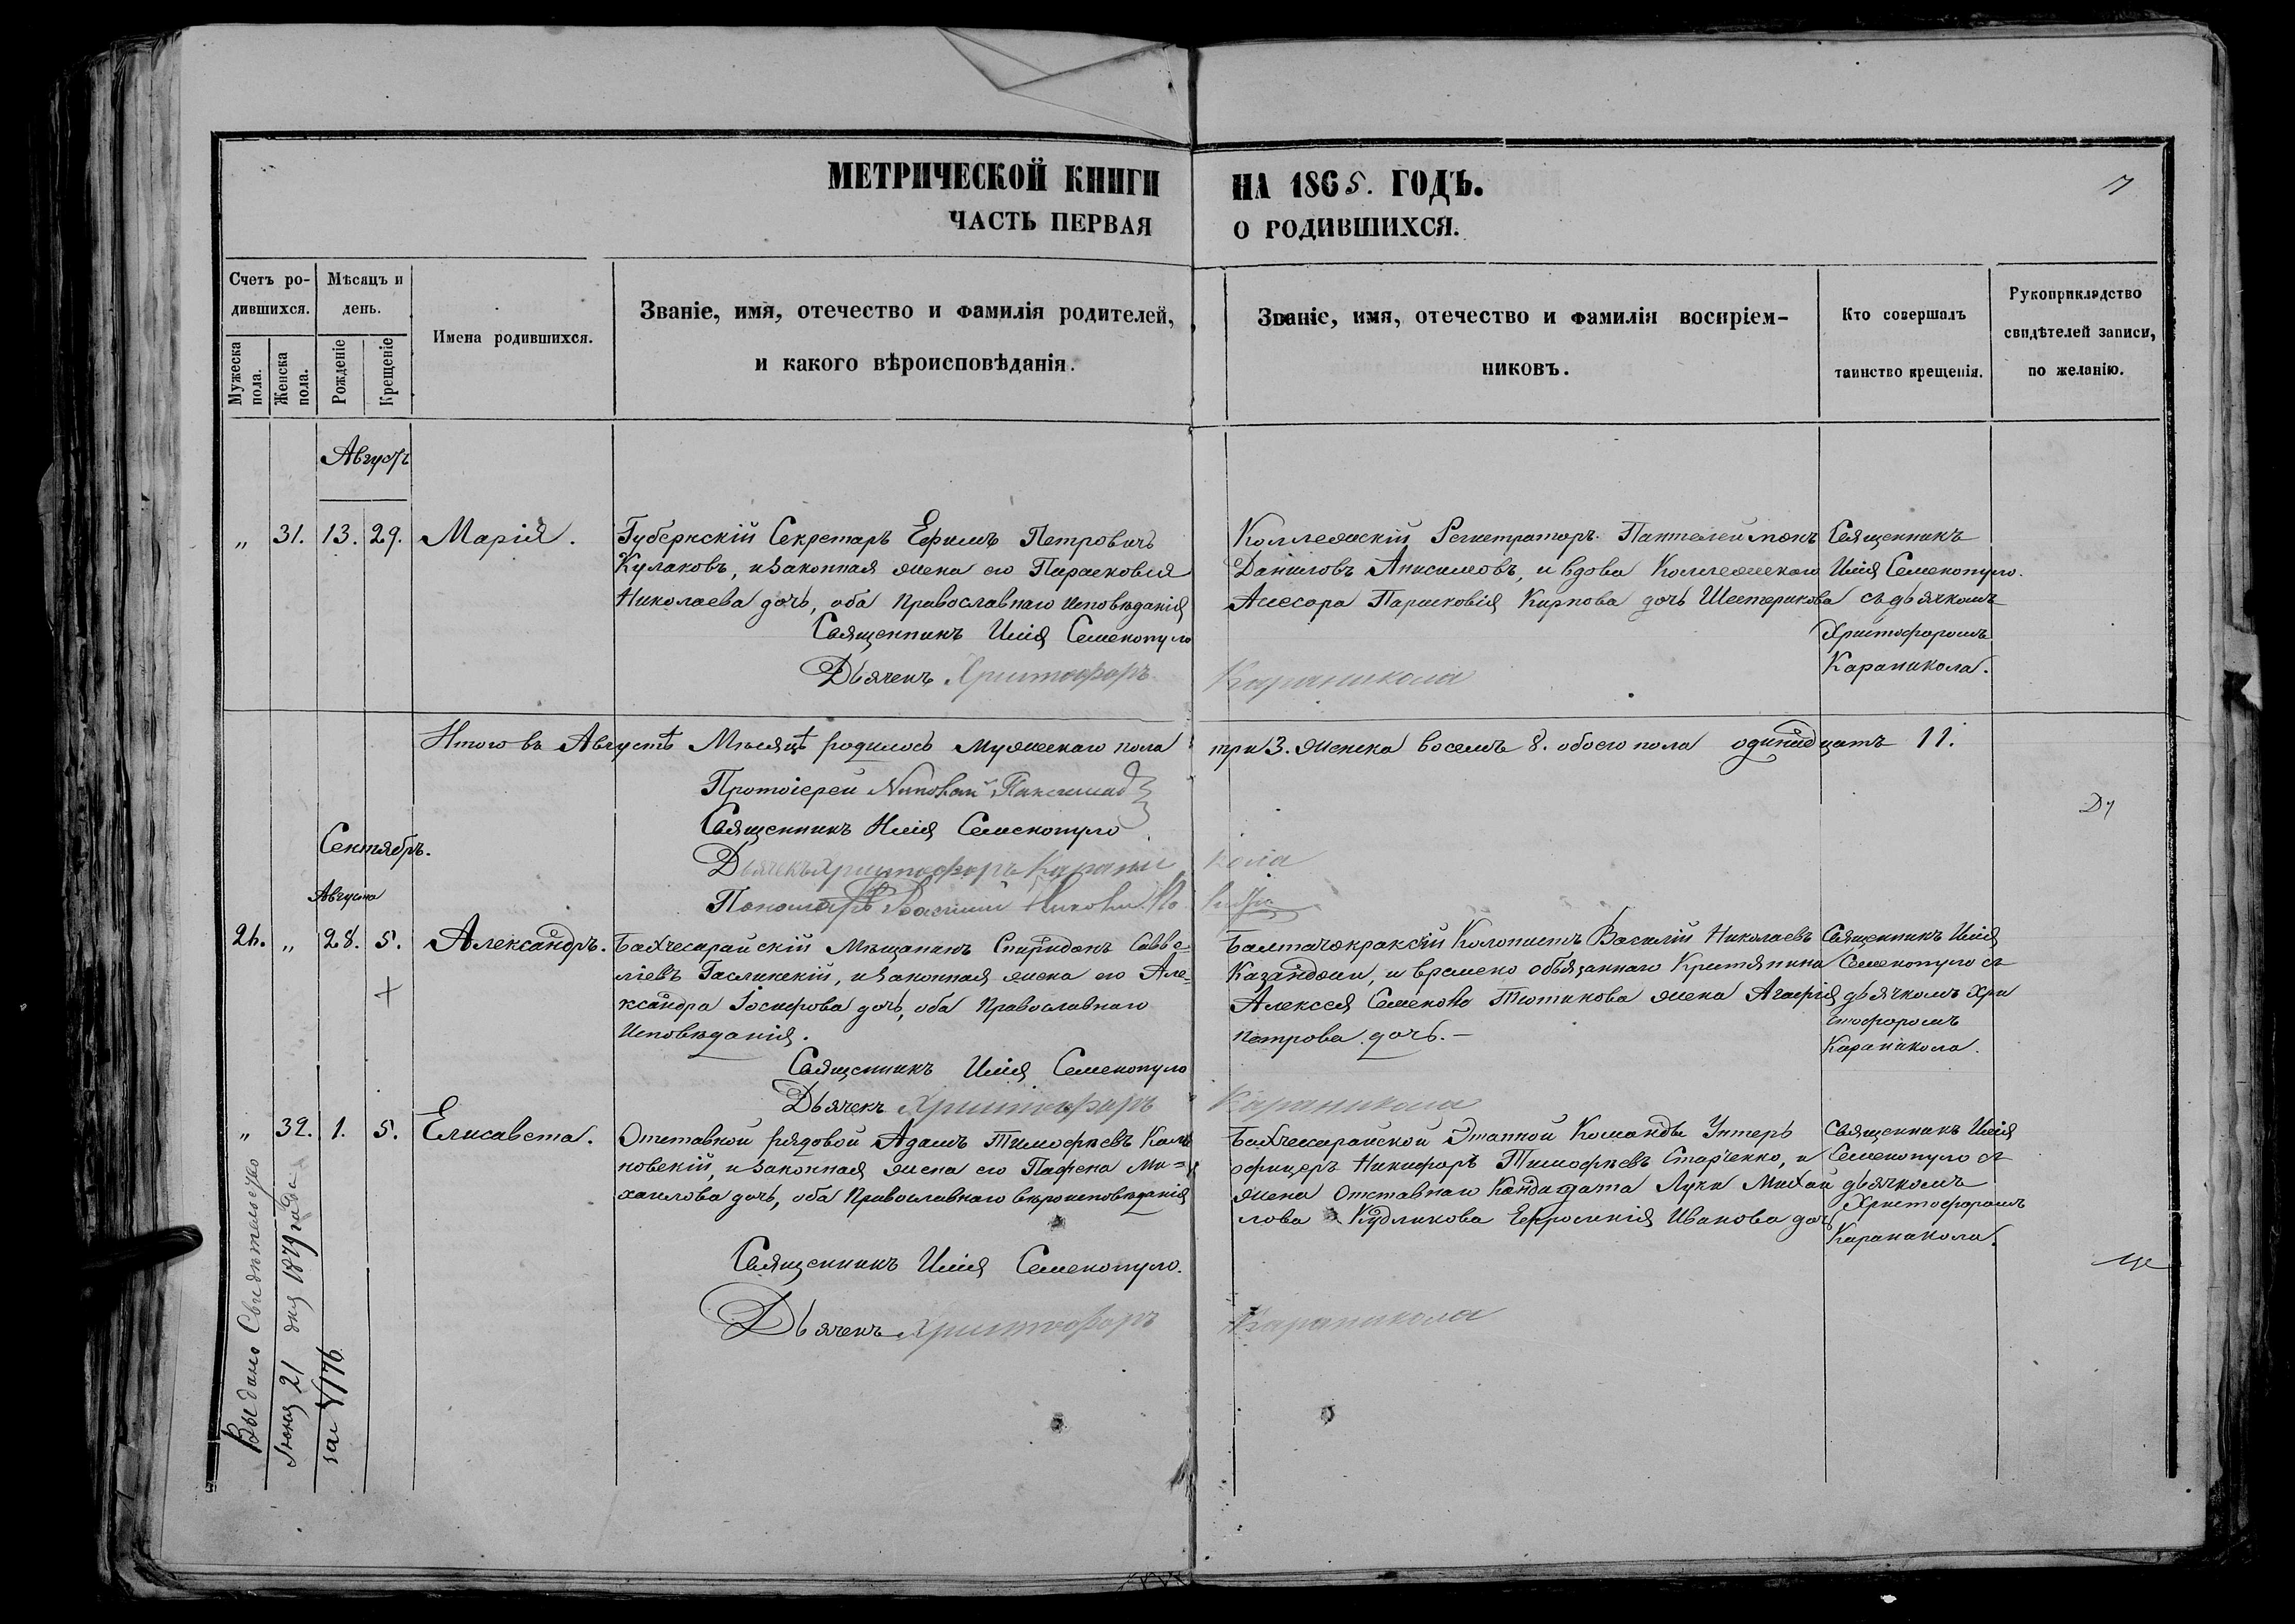 МЕТРИЧЕСКОЙ КНИГИ НА 1865. ГОДЪ.
ЧАСТЬ ПЕРВАЯ О РОДИВШИХСЯ.
Счетъ ро-
дившихся.
Мужеска пола.
Женска пола.
Мѣсяцъ и
день.
Рожденіе
Крещеніе
Имена родившихся.
Званіе, имя, отечество и фамилія родителей,
и какого вѣроисповѣданія.
Званіе, имя, отечество и фамилія воспріем-
никовъ.
Кто совершалъ
таинство крещенія.
Рукоприкладство
свидѣтелей записи,
по желанію.
Августъ
„ 31. 13. 29. Марія.
Губернскій Секретарь Ефимъ Петровичъ
Кулаковъ, и законная жена его Парасковія
Николаева дочь, оба Православнаго исповѣданія
Священникъ Илія Семенопуло
Дьячекъ Христофоръ Караникола
Коллежскій Регистраторъ Пантелеймонъ
Даниловъ Анисимовъ, и вдова Коллежскаго
Асесора Парасковія Карпова дочь Шестерикова
Священникъ
Илія Семенопуло.
съ дьячкомъ
Христофоромъ
Караникола.
Итого въ Августѣ Мѣсяцѣ родилось мужескаго пола три 3. женска восемь 8. обоего пола одинадцать 11.
Протоіерей
Священникъ Илія Семенопуло
Дьячекъ Христофоръ Караникола
Пономарь Василий
Сентябрь.
Августа
24. „ 28. 5. Александръ.
Бахчесарайскій Мѣщанинъ Спиридонъ Савве-
ліевъ Гаслинскій, и законная жена его Але-
ксандра Іосифова дочь, оба Православнаго
Исповѣданія.
Священникъ Илія Семенопуло
Дьячекъ Христофоръ Караникола
Колонистъ Василій Николаевъ
Казанджи, и времено обязаннаго
Алексея Семенова Тютикова жена Агафія
Петрова дочь.-
Священникъ Илія
Семенопуло съ
дьячкомъ Хри
стофоромъ
Караникола.
„ 32. 1. 5. Елисавета.
Отставной рядовой Адамъ Тимофѣевъ
новскій, и законная жена его Ми-
хаилова дочь, оба Православнаго вѣроисповѣданія
Священникъ Илія Семенопуло.
Дьячекъ Христофоръ Караникола
Бахчесарайской Этапной Команды Унтеръ
офицеръ Никифоръ Тимофѣевъ Старченко, и
жена Отставнаго Кандидата Луки Михай
лова Кудликова Ефросинія Иванова дочь
Священникъ Илія
Семенопуло съ
дьячкомъ
Христофоромъ
Караникола.
Выдано Свидѣтельство
Июня 21 дня 1879 года
за № 176